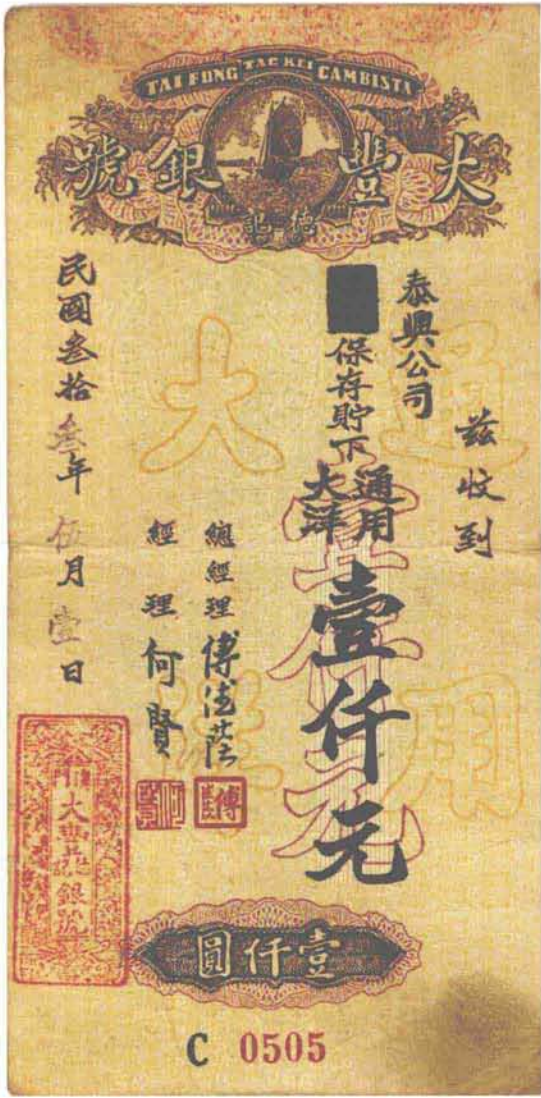 TAI FUNG TAC KEI CAMBISTA
大豐銀號
德記
茲收到
泰興公司
保存貯下
通用
大洋
壹仟元
總經理 傅德蔭
經理 何賢
民國叁拾叁年伍月壹日
通用大洋
壹仟元
大豐銀號
壹仟圓
C 0505